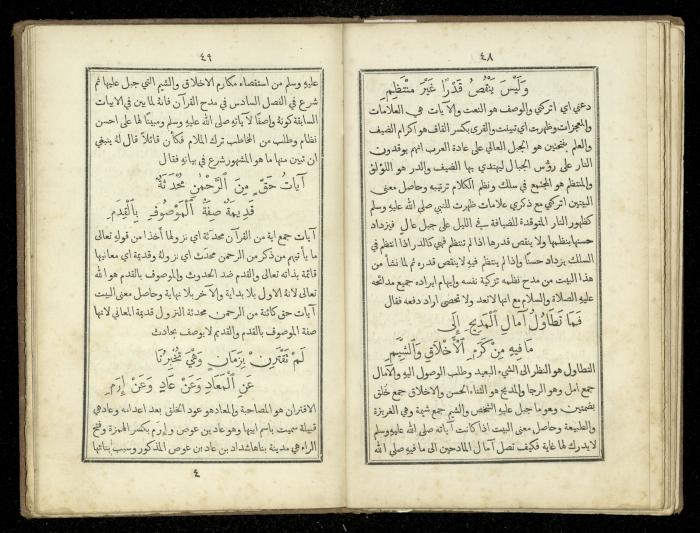 ٤٨
وَلَيْسَ يَنْقُصُ قَدْرًا غَيْرَ مُنْتَظِمِ
دعني اي اتركني والوصف هو النعت والآيات هي العلامات
والمعجزات وظهرت اي تبينت والقرى بكسر القاف هو اكرام الضيف
والعلم بفتحتين هو الجبل العالي على عادة العرب انهم يوقدون
النار على رؤس الجبال ليهتدي بها الضيف والدر هو اللؤلؤ
والمنتظم هو المجتمع في سلك ونظم الكلام ترتيبه وحاصل معنى
البيتين اتركني مع ذكري علامات ظهرت للنبي صلى الله عليه وسلم
كظهور النار المتوقدة للضيافة في الليل على جبل عال فيزداد
حسنها بنظمها ولا ينقص قدرها اذا لم تنتظم فهي كالدر اذا انتظم في
السلك يزداد حسنًا واذا لم ينتظم فيه لا ينقص قدره ثم لما نشأ من
هذا البيت من مدح نظمه تزكية نفسه وايهام ايراده جميع مدائحه
عليه الصلاة والسلام مع انها لا تعد ولا تحصى اراد دفعه فقال
فَمَا تَطَاوُلُ آمَالِ الْمَدِيحِ إِلَى
مَا فِيهِ مِنْ كَرَمِ الْأَخْلَاقِ وَالشِّيَمِ
التطاول هو النظر الى الشيء البعيد وطلب الوصول اليه والآمال
جمع امل وهو الرجا والمديح هو الثناء الحسن والاخلاق جمع خُلق
بضمتين وهو ما جبل عليه الشخص والشيم جمع شيمة وهي الغريزة
والطبيعة وحاصل معنى البيت اذا كانت آياته صلى الله عليه وسلم
لا يدرك لها غاية فكيف تصل آمال المادحين الى ما فيه صلى الله
٤٩
عليه وسلم من استقصاء مكارم الاخلاق والشيم التي جبل عليها ثم
شرع في الفصل السادس في مدح القرآن فانه لما بين في الابيات
السابقة كونه واصفًا لآياته صلى الله عليه وسلم ومبينًا لها على احسن
نظام وطلب من المخاطب ترك الملام فكأن قائلاً قال له ينبغي
ان تبين منها ما هو المشهور شرع في بيانه فقال
آيَاتُ حَقٍّ مِنَ الرَّحْمٰنِ مُحْدَثَةٌ
قَدِيمَةٌ صِفَةُ الْمَوْصُوفِ بِالْقِدَمِ
آيات جمع اية من القرآن محدثة اي نزولها أخذا من قوله تعالى
ما يأتيهم من ذكر من الرحمن محدث اي نزوله وقديمة اي معانيها
قائمة بذاته تعالى والقدم ضد الحدوث والموصوف بالقدم هو الله
تعالى لانه الاول بلا بداية والآخر بلا نهاية وحاصل معنى البيت
آيات حق كائنة من الرحمن محدثة النزول قديمة المعاني لانها
صفة الموصوف بالقدم والقديم لا يوصف بحادث
لَمْ تَقْتَرِنْ بِزَمَانٍ وَهْيَ تُخْبِرُنَا
عَنِ الْمَعَادِ وَعَنْ عَادٍ وَعَنْ إِرَمِ
الاقتران هو المصاحبة والمعاد هو عود الخلق بعد اعدامه وعاد هي
قبيلة سميت باسم ابيها وهو عاد بن عوص وإرم بكسر الهمزة وفتح
الراء هي مدينة بناها شداد بن عاد بن عوص المذكور وسبب بنائها
٤